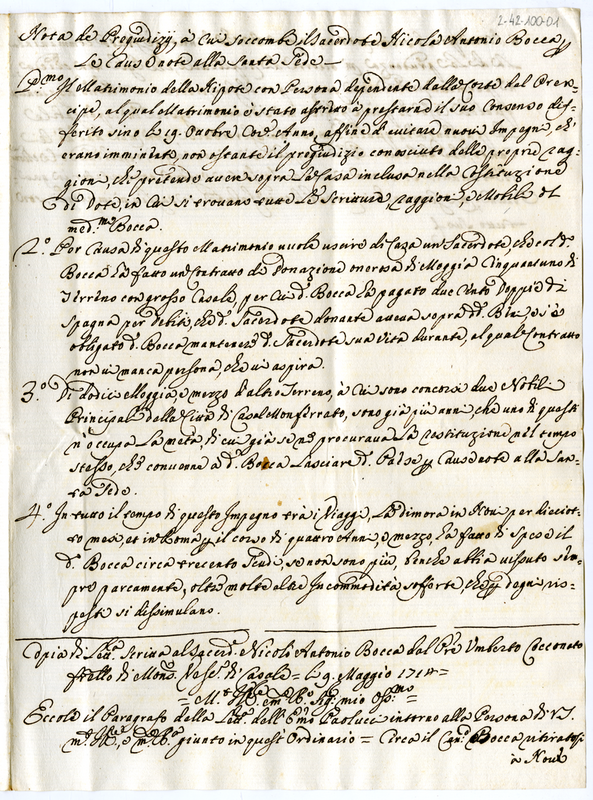 2-42-100-01
Nota de Pregiudizij, à cui soccombe il Sacerdote Nicola Antonio Bocca p
Le Cause note alla Santa Sede
P.mo Il Matrimonio della Nipote con Persona dipendente dalla Corte del Pren-
cipe, al qual Matrimonio è stato astretto à prestarne il suo Consenso dif-
ferito sino li 19. Ottobre Anno, affine d'evitare nuovi Impegni, ch'
erano imminenti, non ostante il pregiudizio conosciuto delle proprie rag-
gioni, che pretende avere sopra la Casa inclusa nella Costituzione
di Dote, in cui si trovano tutte le Scritture, raggioni, e Mobile del
med.mo Bocca.
2.o Per causa di questo Matrimonio vuole uscire di Casa un Sacerdote, che col d.o
Bocca hà fatto un Contratto de Donazione onerosa di Moggia Cinquantuno di
Terreno con grosso Casale, per cui d. Bocca hà pagato due cento Doppie di
Spagna per debiti, che d. Sacerdote donante aveva sopra d.i Beni, e si è
obligato d. Bocca mantenere d. Sacerdote sua vita durante, al qual Contratto
non vi manca persona, che vi aspira.
3.o Di dodici Moggia, e mezzo d'altro Terreno, à cui sono concorsi due Nobili
Principali della Città di Casal Monferrato, sono già più anni, che uno di questi
n'occupa la metà, di cui già se ne procurava la restituzione nel tempo
stesso, che convenne a d.o Bocca lasciare d. Paese p Cause note alla San-
ta Sede.
4.o In tutto il tempo di questo Impegno trà i Viaggi, la dimora in Novi per dieciot-
to mesi, et in Roma p il corso di quattro Anni, e mezzo, hà fatto di Spesa il
d. Bocca circa trecento Scudi, se non sono più, benche abbia vissuto sem-
pre parcamente, oltre molte altre Incommodità sofferte, che p degni ris-
petti si dissimulano.
Copia di Lett.a Scritta al Sacerd. Nicola Antonio Bocca dal Pre Umberto Cocconato
fratello di Mons. Vesc. di Casale = li 9. Maggio 1714 =
= M.to Ill.re e m.to R.do Sig. mio Oss.mo =
Eccole il Paragrafo della Lett.a dell' Emo Paolucci intorno alla Persona di V.S.
m.to Ill.re e m.to R.da giunto in quest' Ordinario = Circa il Can.o Bocca ritiratosi
in Novi